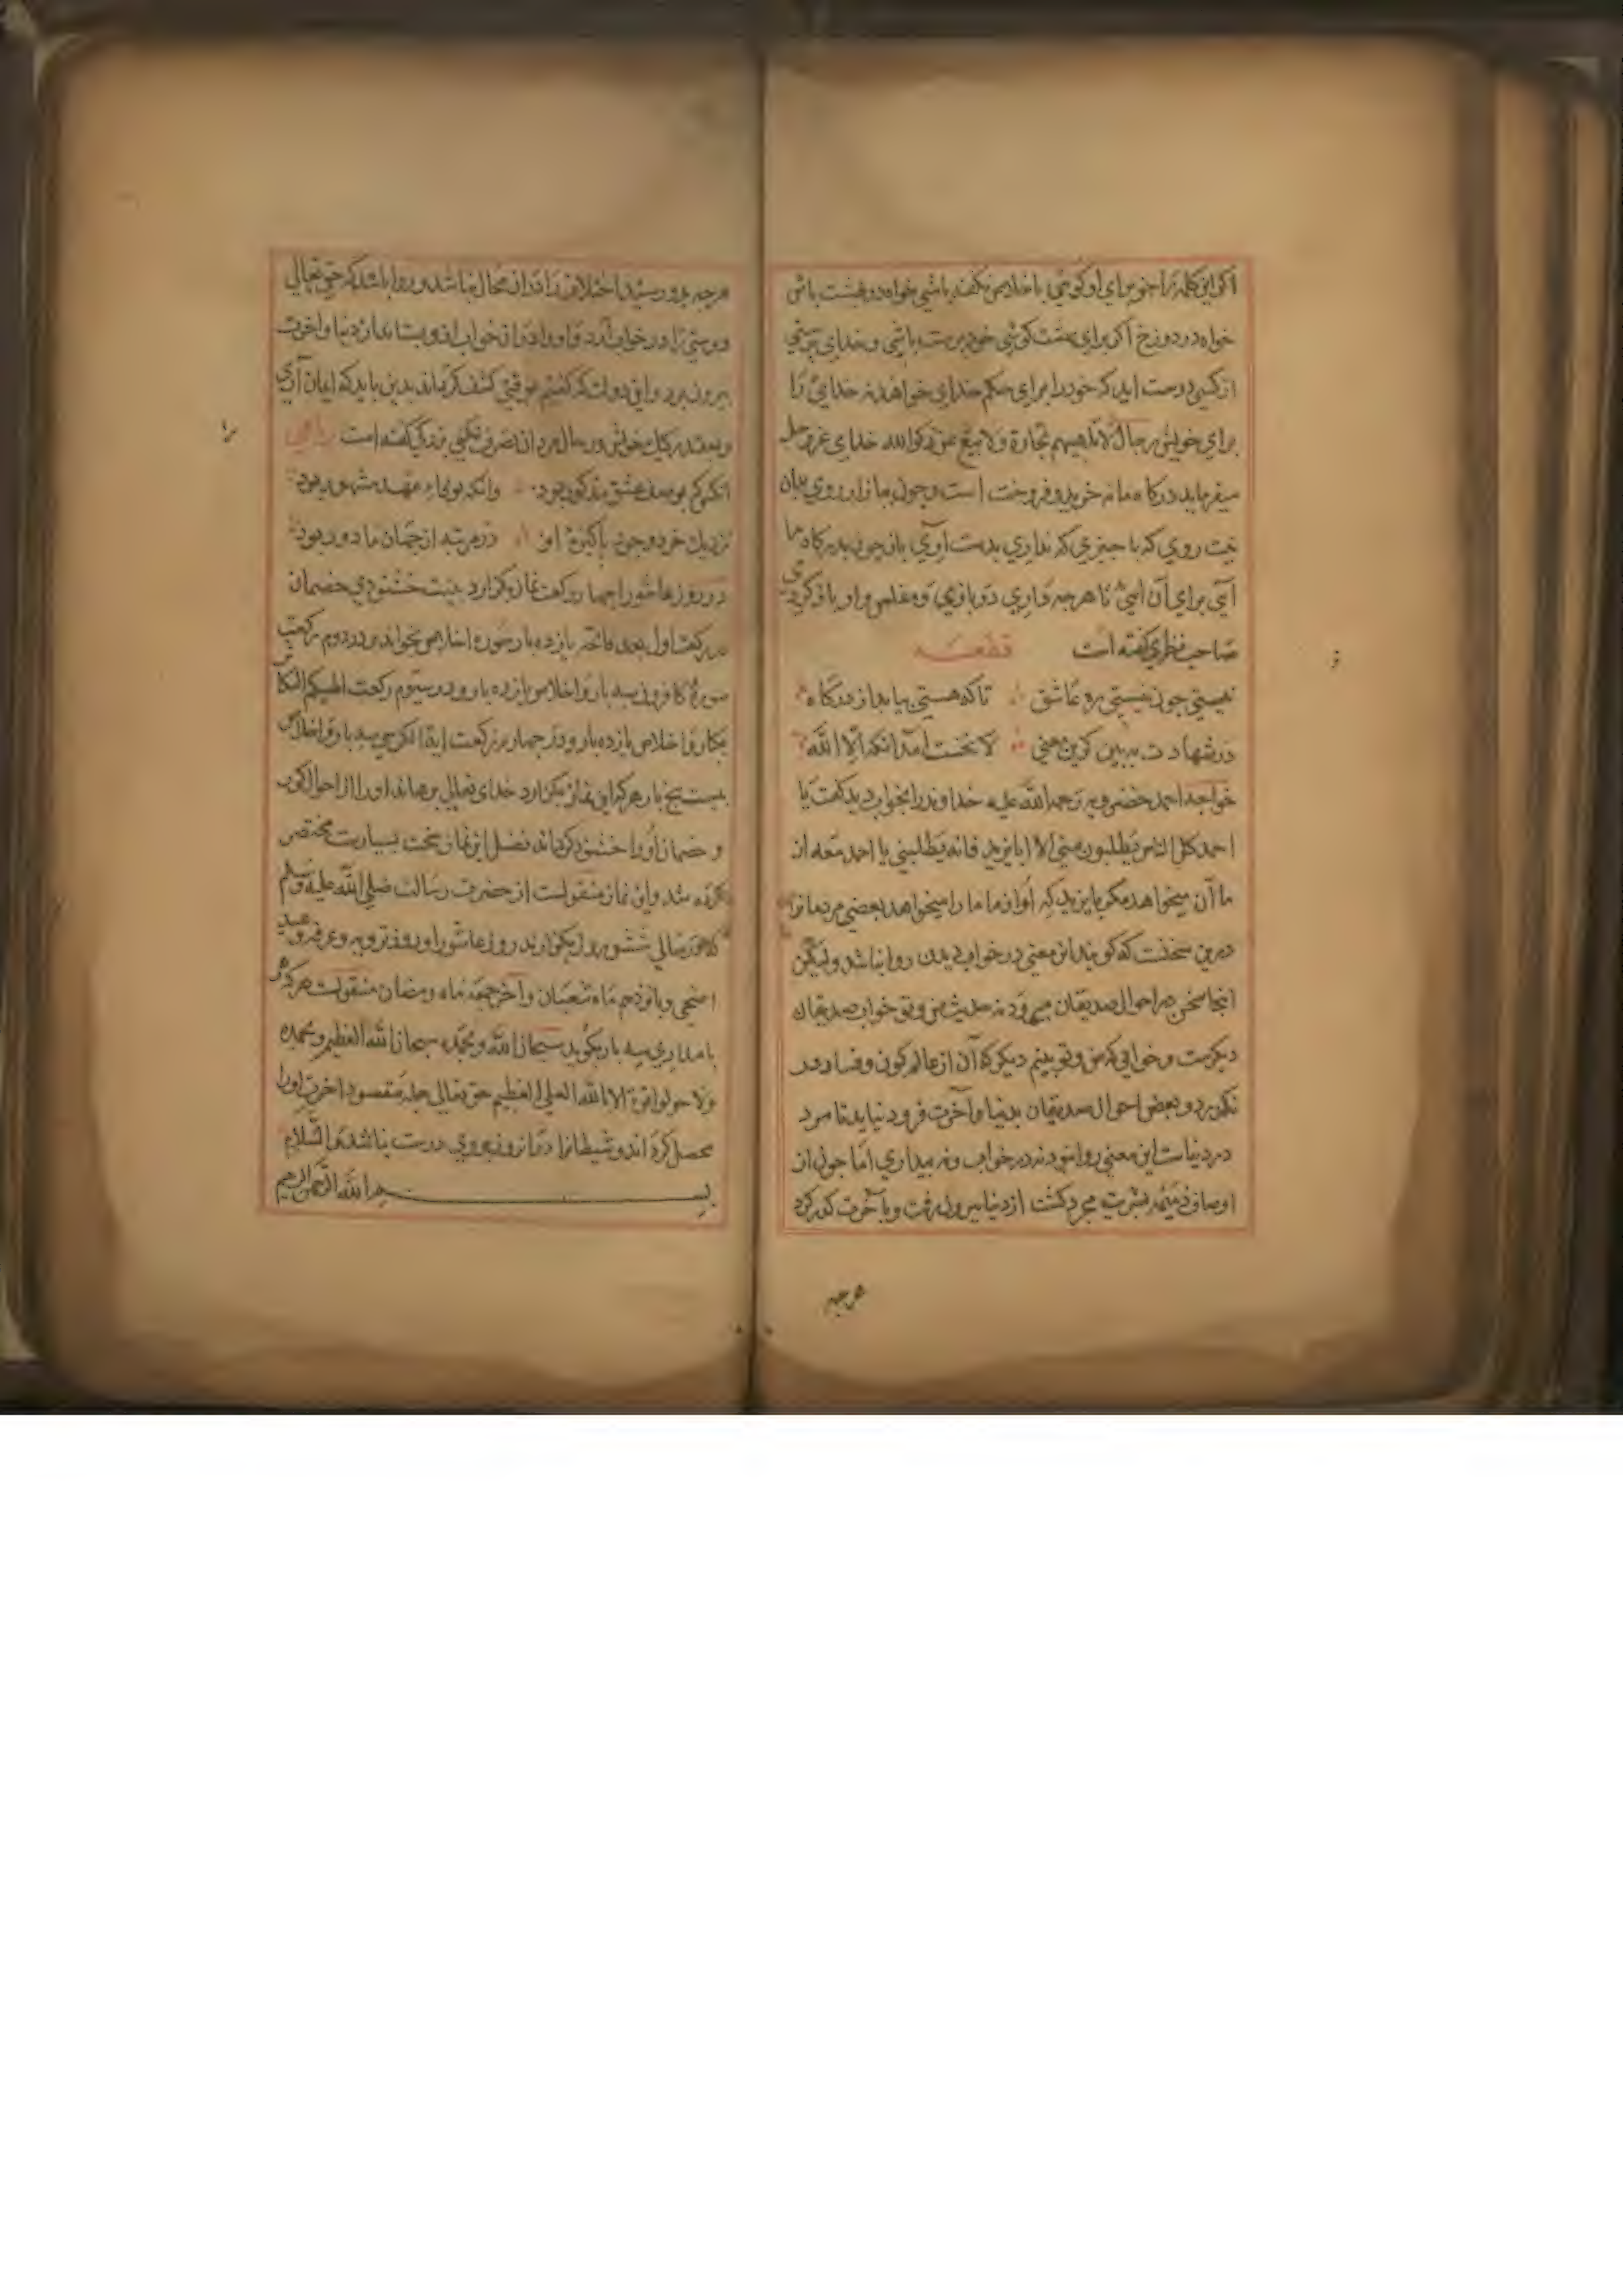 اکر این کلمه را جز برای او کویی با خلاص نکفته باشی خواه در بهشت باش
خواه در دوزخ اکر برای بهشت کویی خود پرست باشی و خدای پرستی
از کسی درست اید که خود را برای حکم خدای خواهد نه خدایرا
برای خویش رجال لا تلهیهم تجارة ولا بیع عن ذکر الله خدای عز و جل
میفرماید درکاه ما نه خرید و فروخت است و چون
روی که با چیزی که نداری بدست آری باز چون بدرکاه ما
آیی برای آن آیی تا هرچه داری و مفلس وار باز کردی
صاحب نظری کفته است قطعه
نیستی چون نیستی ره عاشق تا که هستی بیاید از درکاه
در شهادت ببین کزین معنی لا نخست آمد انکه الا الله
خواجه احمد خضرویه رحمة الله علیه خداوند را بخواب دید کفت یا
احمد کل الناس یطلبون منی الا ابا یزید فانه یطلبنی یا احمد همه از
ما آن میخواهد مکر بایزید که او از ما ما را میخواهد بعضی مردمانرا
درین سخنست که کویند این معنی در خواب دیدن روا نباشد ولیکن
اینجا سخن در احوال صدیقان میرود نه حدیث من و تو خواب صدیقان
دیکرست و خوابی که من و تو بینیم دیکر که آن از عالم کون و فساد در
نکذرد و بعضی احوال صدیقان بدنیا و آخرت فرو نیاید تا مرد
در دنیاست این معنی روا نبود نه در خواب و نه بیداری اما چون از
اوصاف ذمیمه بشریت مجرد کشت از دنیا بیرون رفت و بآخرت کذر کرد
هرجه
هرچه برو رسید اختلاف را در آن مجال نباشد و روا باشد که حق تعالی
دوستی را در خواب آرد و او را در آن خواب ازو بستاند از دنیا و اخرت
بیرون برد و این دولت که کفتیم بدین باید که ایمان آری
در حال مردان تصرف نکنی بزرکی کفته است رباعی
انکو که بوصف عشق مذکور بود وانکه بوفاء عهد مشهور بود
نزدیک خرد وجود پاکیزه او در مرتبه از جهان ما دور بود
در روز عاشورا چهار رکعت نماز بکزارد بنیت خشنودی خصمان
در رکعت اول بعد فاتحه یازده بار سوره اخلاص بخواند و در دوم رکعت
سورة کافرون سه بار و اخلاص یازده بار و در سیوم رکعت الهیکم التکاثر
یکبار و اخلاص یازده بار و در چهارم رکعت آیة الکرسی سه بار و اخلاص
بیست پنج بار هرکه این نماز بکزارد خدای تعالی برهاند او را از احوال کور
و خصمان او را خشنود کرداند فضل این نماز بسیارست مختصر
کرده شد و این نماز منقولست از حضرت رسالت صلی الله علیه وسلم
که در سالی شش روز بکزارند روز عاشورا و روز ترویه و عرفه و عید
اضحی و پانزدهم ماه شعبان و آخر جمعه ماه رمضان منقولست هرکه هر
بامدادی سه بار بکوید سبحان الله وبحمده سبحان الله العظیم وبحمده
ولا حول ولا قوة الا بالله العلی العظیم حق تعالی جمله مقصود اخرت او را
محصل کرداند و شیطانرا در آن روز بر وی دست نباشد والسلام
بسم الله الرحمن الرحیم